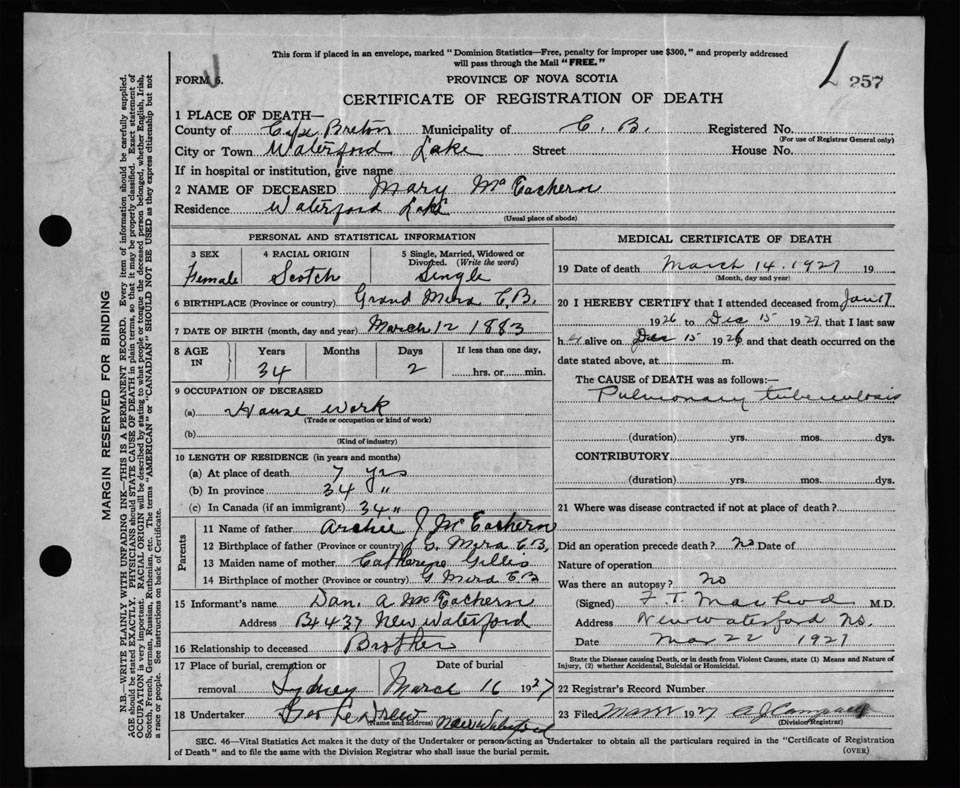 This form if placed in an envelope, marked "Dominion Statistics—Free, penalty for improper use $300," and properly addressed
will pass through the Mail "FREE."
FORM 6.
PROVINCE OF NOVA SCOTIA
257
CERTIFICATE OF REGISTRATION OF DEATH
1 PLACE OF DEATH—
County of Cape Breton Municipality of C. B. Registered No.
(For use of Registrar General only)
City or Town Waterford Lake Street House No.
If in hospital or institution, give name
2 NAME OF DECEASED Mary McEachern
Residence Waterford Lake
(Usual place of abode)
PERSONAL AND STATISTICAL INFORMATION
3 SEX 4 RACIAL ORIGIN 5 Single, Married, Widowed or
Divorced. (Write the word)
Female Scotch Single
6 BIRTHPLACE (Province or country) Grand Mira C.B.
7 DATE OF BIRTH (month, day and year) March 12 1883
8 AGE IN Years Months Days If less than one day,
34 2 hrs. or min.
9 OCCUPATION OF DECEASED
(a) House work
(Trade or occupation or kind of work)
(b)
(Kind of industry)
10 LENGTH OF RESIDENCE (in years and months)
(a) At place of death 7 yrs
(b) In province 34 "
(c) In Canada (if an immigrant) 34 "
Parents
11 Name of father Archie J McEachern
12 Birthplace of father (Province or country) G. Mira C.B.
13 Maiden name of mother Catherine Gillis
14 Birthplace of mother (Province or country) G Mira C B
15 Informant's name Dan. A McEachern
Address B4437 New Waterford
16 Relationship to deceased Brother
17 Place of burial, cremation or Date of burial
removal Sydney March 16 1927
18 Undertaker New Waterford
(Name and address)
MEDICAL CERTIFICATE OF DEATH
19 Date of death March 14. 1927 19
(Month, day and year)
20 I HEREBY CERTIFY that I attended deceased from Jan 17
1926 to Dec 15 1927, that I last saw
h alive on Dec 15 1926 and that death occurred on the
date stated above, at m.
The CAUSE of DEATH was as follows:—
Pulmonary tuberculosis
(duration) yrs. mos. dys.
CONTRIBUTORY
(duration) yrs. mos. dys.
21 Where was disease contracted if not at place of death?
Did an operation precede death? no Date of
Nature of operation
Was there an autopsy? no
(Signed) F. T. MacLeod M.D.
Address New Waterford NS.
Date Mar 22 1927
State the Disease causing Death, or in death from Violent Causes, state (1) Means and Nature of
Injury, (2) whether Accidental, Suicidal or Homicidal.
22 Registrar's Record Number
23 Filed 1927
(Division Registrar)
SEC. 46—Vital Statistics Act makes it the duty of the Undertaker or person acting as Undertaker to obtain all the particulars required in the "Certificate of Registration
of Death" and to file the same with the Division Registrar who shall issue the burial permit.
(OVER)
MARGIN RESERVED FOR BINDING
N.B.—WRITE PLAINLY WITH UNFADING INK—THIS IS A PERMANENT RECORD. Every item of information should be carefully supplied.
AGE should be stated EXACTLY. PHYSICIANS should STATE CAUSE OF DEATH in plain terms, so that it may be properly classified. Exact statement of
OCCUPATION is very important. RACIAL ORIGIN will be described by stating to what people or tongue the deceased person belonged, whether English, Irish,
Scotch, French, German, Russian, Ruthenian, etc. The terms "AMERICAN" or "CANADIAN" SHOULD NOT BE USED as they express citizenship but not
a race or people. See instructions on back of Certificate.